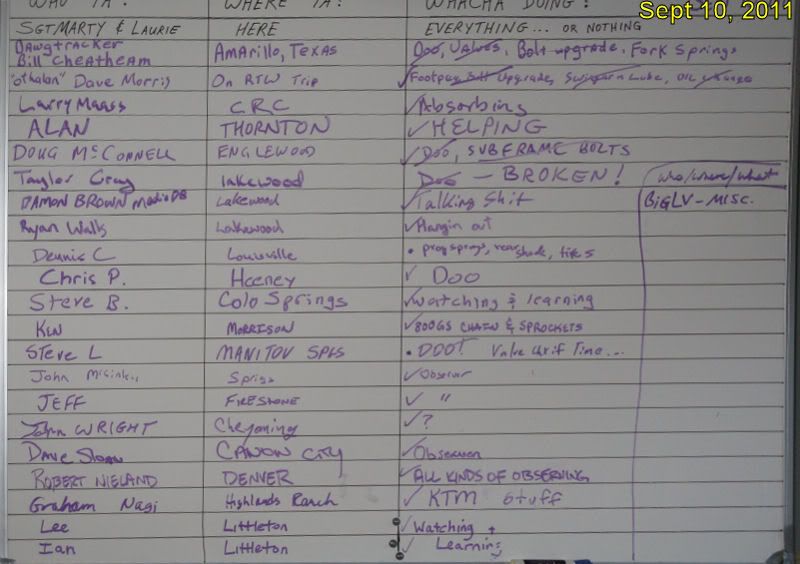 Sept 10, 2011
WHO YA? WHERE YA? WHATCHA DOING?
SGT MARTY & LAURIE HERE EVERYTHING... OR NOTHING
Dawgtracker
Bill Cheatheam AMARILLO, TEXAS Doo, Valves, Bolt upgrade, Fork Springs
"otkalon" Dave Morris On RTW Trip ✓ Upgrades,
Larry Maass CRC ✓Absorbing
ALAN THORNTON ✓HELPING
DOUG McCONNELL ENGLEWOOD ✓DOO, SUBFRAME BOLTS
Taylor Gray lakewood Doo - BROKEN! who/where/what
DAMON BROWN Lakewood ✓Talking Shit BIGLV - MISC.
Ryan Walls Lakewood ✓Hangin out
Dennis C Louisville • prog springs, rear
Chris P. Heeney ✓ Doo
Steve B. Colo Springs ✓watching & learning
KEN MORRISON ✓800GS CHAIN & SPROCKETS
STEVE L MANITOU SPGS • DOO! Valve Time...
John Springs ✓Observer
JEFF FIRESTONE ✓ "
John WRIGHT ✓?
Dave Sloan CANON CITY ✓Observer
ROBERT NIELAND DENVER ✓ALL KINDS OF OBSERVING
Graham Nagi Highlands Ranch ✓ KTM Stuff
Lee Littleton ✓Watching +
Ian Littleton ✓ Learning